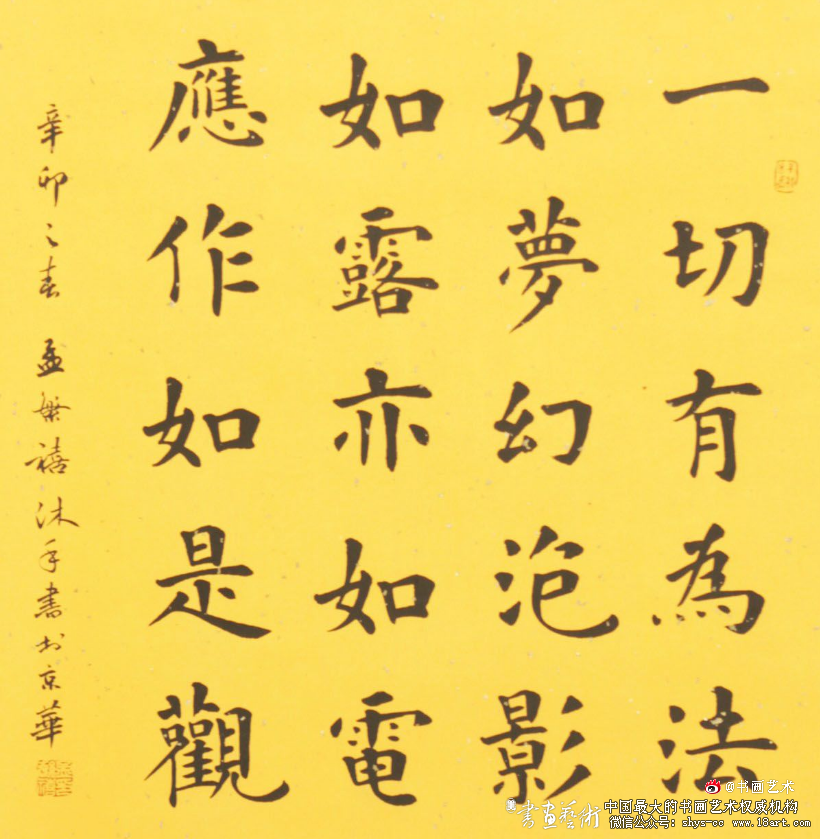 一切有為法
如夢幻泡影
如露亦如電
應作如是觀
辛卯之春 孟繁禧沐手書於京華
@书画艺术
書畫藝術
中国最大的书画艺术权威机构
微信公众号: shys-cc www.18art.com